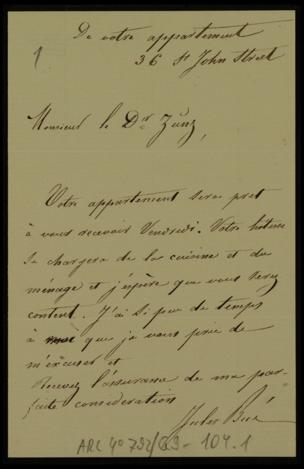 1
De votre appartement
36 St John Street
Monsieur le Dr Zunz,
Votre appartement sera pret
à vous recevoir Vendredi. Votre hotesse
se chargera de la cuisine et du
ménage et j'espère que vous serez
content. J'ai si peu de temps
à moi que je vous prie de
m'excuser et
Recevez l'assurance de ma par-
faite consideration
Jules Bué
ARC 4o 792/G3-104.1